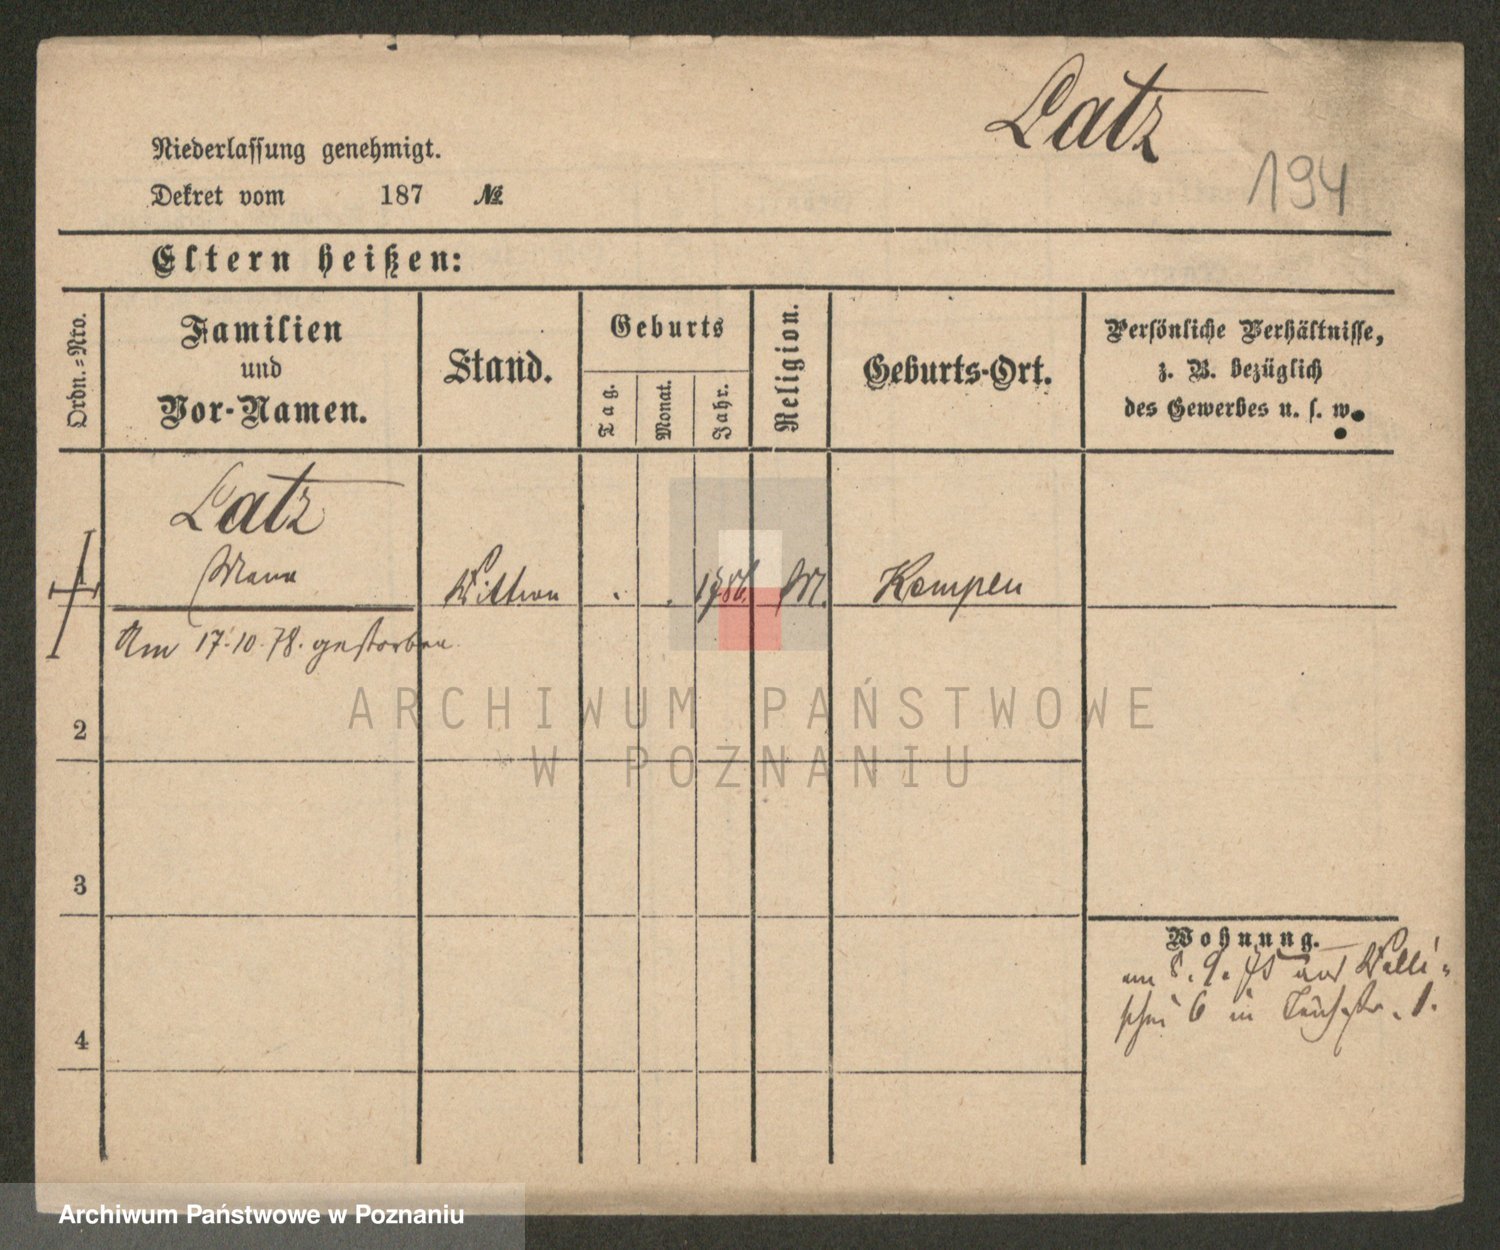 Latz
194
Niederlassung genehmigt.
Dekret vom 187 №
Eltern heißen:
Ordn.-Nro.
Familien
und
Vor-Namen.
Stand.
Geburts
Tag.
Monat.
Jahr.
Religion.
Geburts-Ort.
Persönliche Verhältnisse,
z. B. bezüglich
des Gewerbes u. s. w.
Latz
1 Wittwe 1786. M. Kempen
Am 17.10.78. gestorben
2
3
4
Wohnung.
am 8. 9. 75 aus Walli-
schei 6 in . 1.
ARCHIWUM PAŃSTWOWE
W POZNANIU
Archiwum Państwowe w Poznaniu